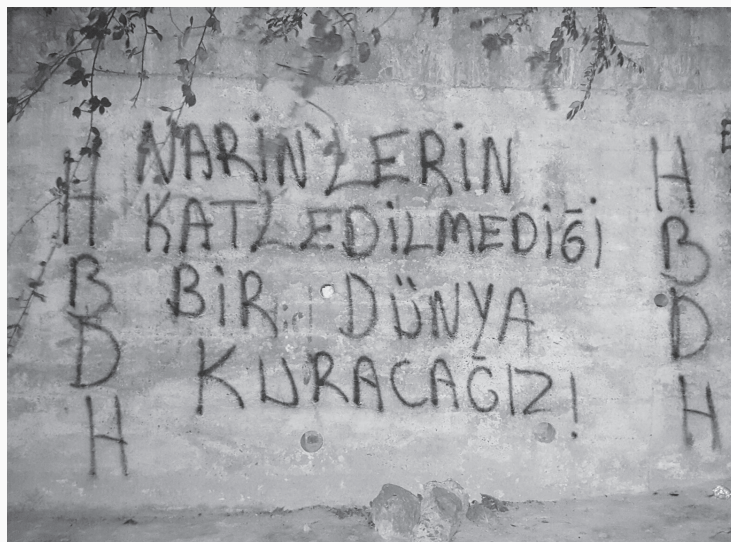 NARİN'LERİN
KATLEDİLMEDİĞİ
BİR DÜNYA
KURACAĞIZ!
H
B
D
H
H
B
D
H